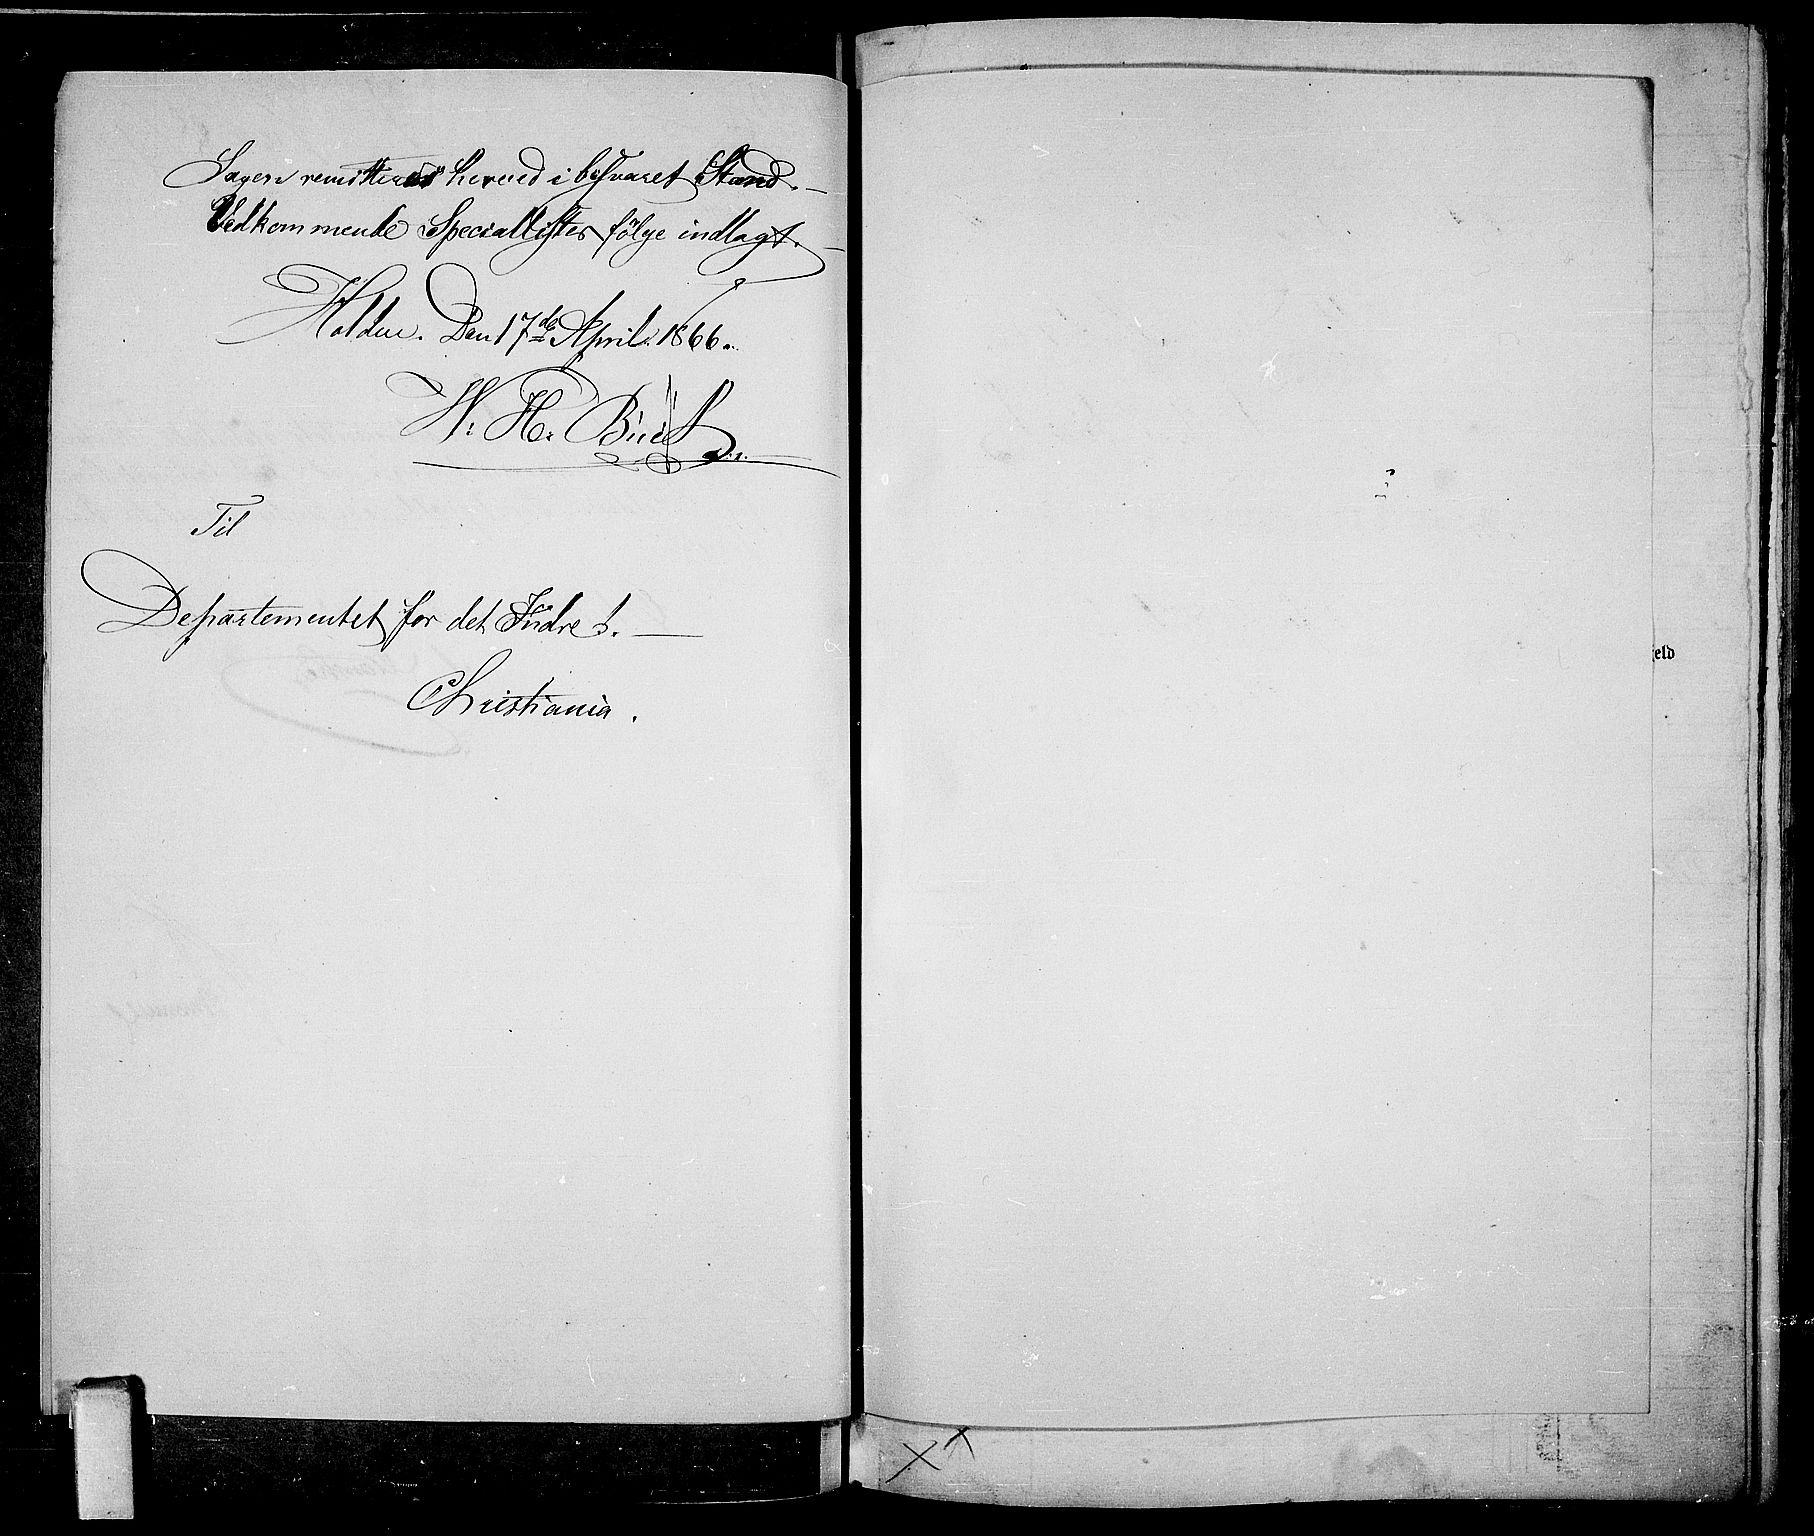 Sagen remitteres herved i besvaret Stand.
Vedkommende Speciallister følge indlagt.
Holden. Den 17de April 1866.
H. H.
Til
Departementet for det Indre
Christiania.
eld
X